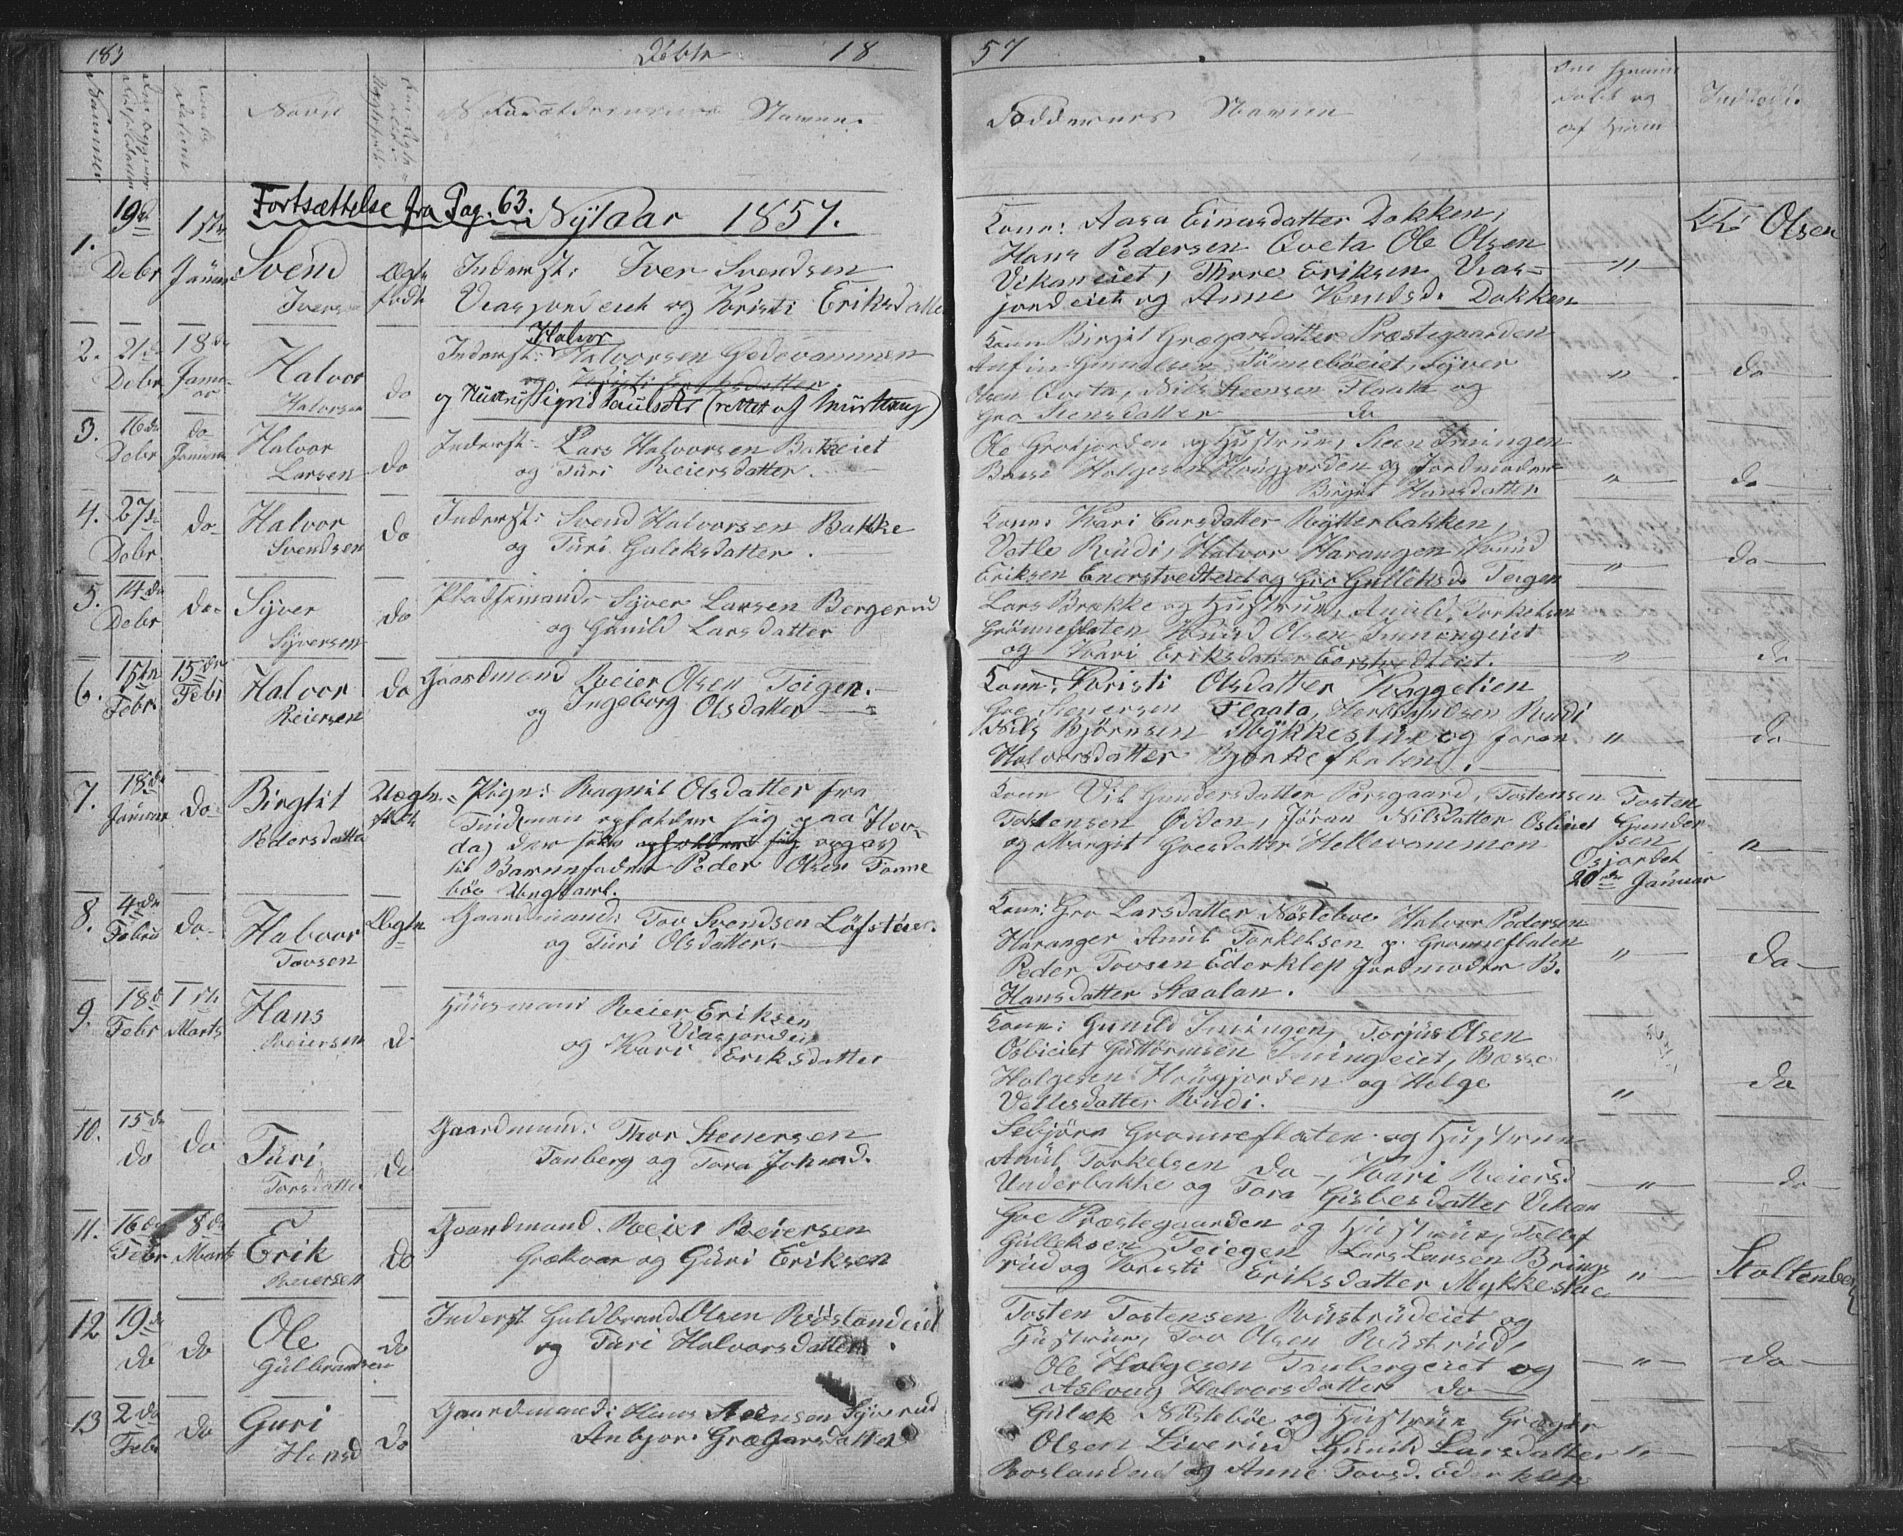 183 Döbte 18 57
Nummer Daabs Datum Navn Forældrernes Navne. Fadderness Navnen
Fortsættelse fra Pag. 63. Nytaar 1857.
1. 19de Debr 1ste Januar Svend Iversen Ægtefødt
Inderst: Iver Svendsen
Viasjordeiet og Kristi Eriksdatter
Kone: Aasa Einarsdatter Dokken,
Hans Pedersen Qveta Ole Olsen
Vikaneiet, Thore Eriksen Vias-
jordeiet og Anne Knudsd. Dokken
" Kl: Olsen
2. 21de Debr 18de Januar Halvor Halvorsen do
Inderst: Halvor Halvorsen Godevammen
og Kristi Eriksdatter
og Hustru Sigrid Paulsdtr (rettet af
Kone Birgit Grægarsdatter Præstegaarden
Anfin Gunulsen Tömmeböeiet, Syver
Olsen Qveta, Nils Steensen Flaata og
Gro Stensdatter do
" do
3. 16de Debr do Januar Halvor Larsen do
Inderst: Lars Halvorsen Bakkeiet
og Turi Reiersdatter.
Ole Grafjorden og Hustrue, Steen Imingen
Basse Holgesen Hougjorden og Jordmoder
Birgit Hansdatter
" do
4. 27de Debr do Halvor Svendsen do
Inderst: Svend Halvorsen Bakke
og Turi Guleksdatter.
Kone: Kari Larsdatter Rytterbakken,
Vetle Rudi, Halvor Harangen Knud
Eriksen Enerstvedteiet og Gro Gulleksd. Teigen
" do
5. 14de Debr do Syver Syversen do
Pladsemand Syver Larsen Bergerud
og Gunild Larsdatter
Lars Brække og Hustrue, Anuld Torkelsen
Grönneflaten Knud Olsen Imingeiet
og Kari Eriksdatter
" do
6. 15de Febr 15de Febr Halvor Reiersen do
Gaardmand Reier Olsen Teigen.
og Ingeborg Olsdatter
Kone: Kristi Olsdatter Raggelien
Goe Stenersen Flaata, Herbrandsen Rudi
Nils Björnsen Mykkestue og Joran
Halvorsdatter Björkeflaten.
" do
7. 18de Januar do Birgit Pedersdatter Uægte födt
Pign: Ragnil Olsdatter fra
Tindmen opholder sig paa Hov-
da, der selv opholder sig
til Barnefader Peder Olsen Tömme
böe Ungkarl.
Kone Vil Gundersdatter Porsgaard, Tostensen
Tostensen Öiden, Jöran Nilsdatter Osliet
og Margit Goesdatter Hellevammen
Tosten
Gunder-
sen
Osjordet
20de Januar
"
8. 4de Febru do Halvor Tovsen Ægte
Gaardmand: Tov Svendsen Löfstuer.
og Turi Olsdatter.
Kone: Gro Larsdatter Nösteboe Halvor Pedersen
Haranger Anul Torkelsen Gronneflaten
Peder Tovsen Ederklep Jordmoder B.
Hansdatter Skaalan.
" do
9. 18de Febr 1ste Marts Hans Reiersen do
Huusmand Reier Eriksen
Viasjordei
og Kari Eriksdatter
Kone: Gunild Imingen, Torjus Olsen
Osbieiet Guttormsen Imingeiet, Basse
Holgesen Hougjorden og Helge
Vetlesdatter Rudi.
" do
10. 15de do do Turi Torsdatter do
Gaardmand: Thor Stenersen
Tonberg og Tora Johnsd.
Sebjörn Gronneflaten og Hustrue
Anul Torkelsen do, Kari Reiersd
Underbakke og Tora Gisbesdatter Vikan
" do
11. 16de Febr 8de Marts Erik Reiersen do
Gaardmand. Reier Reiersen
Grækvar og Guri Eriksen
Goe Præstegaarden og Hustrue, Tollef
Gulleksen Teiegen Lars Larsen Brings
rud og Kristi Eriksdatter Mykkestue
" Stoltenberg
12 19de do do Ole Gulbrandsen do
Inderst Guldbrand Olsen Röslandeiet
og Turi Halvorsdatter.
Tosten Tostensen Rustrudeiet og
Hustrue, Tov Olsen Rustrud,
Ole Holgesen Tonbergeiet og
Aslaug Halvorsdatter do
" do
13 2de Febr do Guri Hansd do
Gaardmand: Hans Steensen Syverud
Anbjor Grægarsdatter
Gulek Nösteböe og Hustrue Græger
Olsen Liverud Gunild Larsdatter
Roslandeiet og Anne Tovsd. Ederklep
"